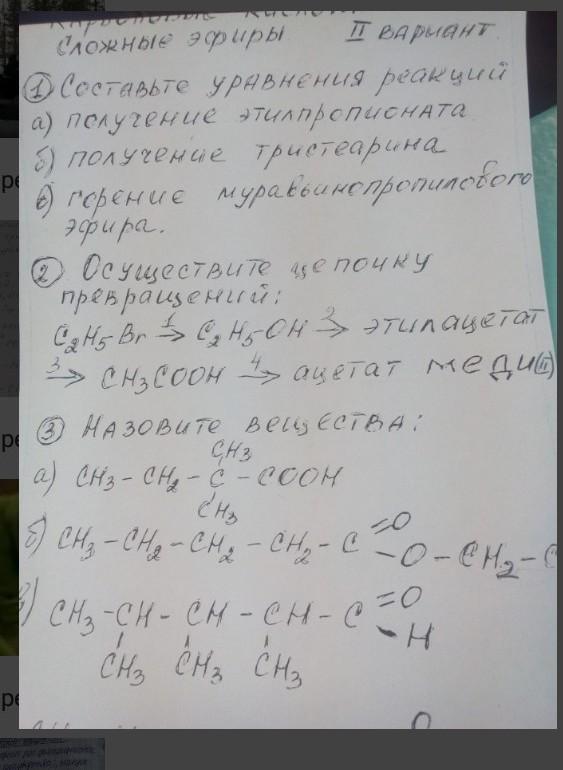 Сложные эфиры II вариант.
① Составьте уравнения реакций
а) получение этилпропионата
б) получение тристеарина
в) горение муравьинопропилового
эфира.
② Осуществите цепочку
превращений:
C₂H₅Br →¹ C₂H₅OH →² этилацетат
→³ CH₃COOH →⁴ ацетат меди(II)
③ Назовите вещества:
CH₃
а) CH₃ - CH₂ - C - COOH
CH₃
б) CH₃ - CH₂ - CH₂ - CH₂ - C =O - O - CH₂ - C
в) CH₃ - CH - CH - CH - C =O - H
CH₃ CH₃ CH₃